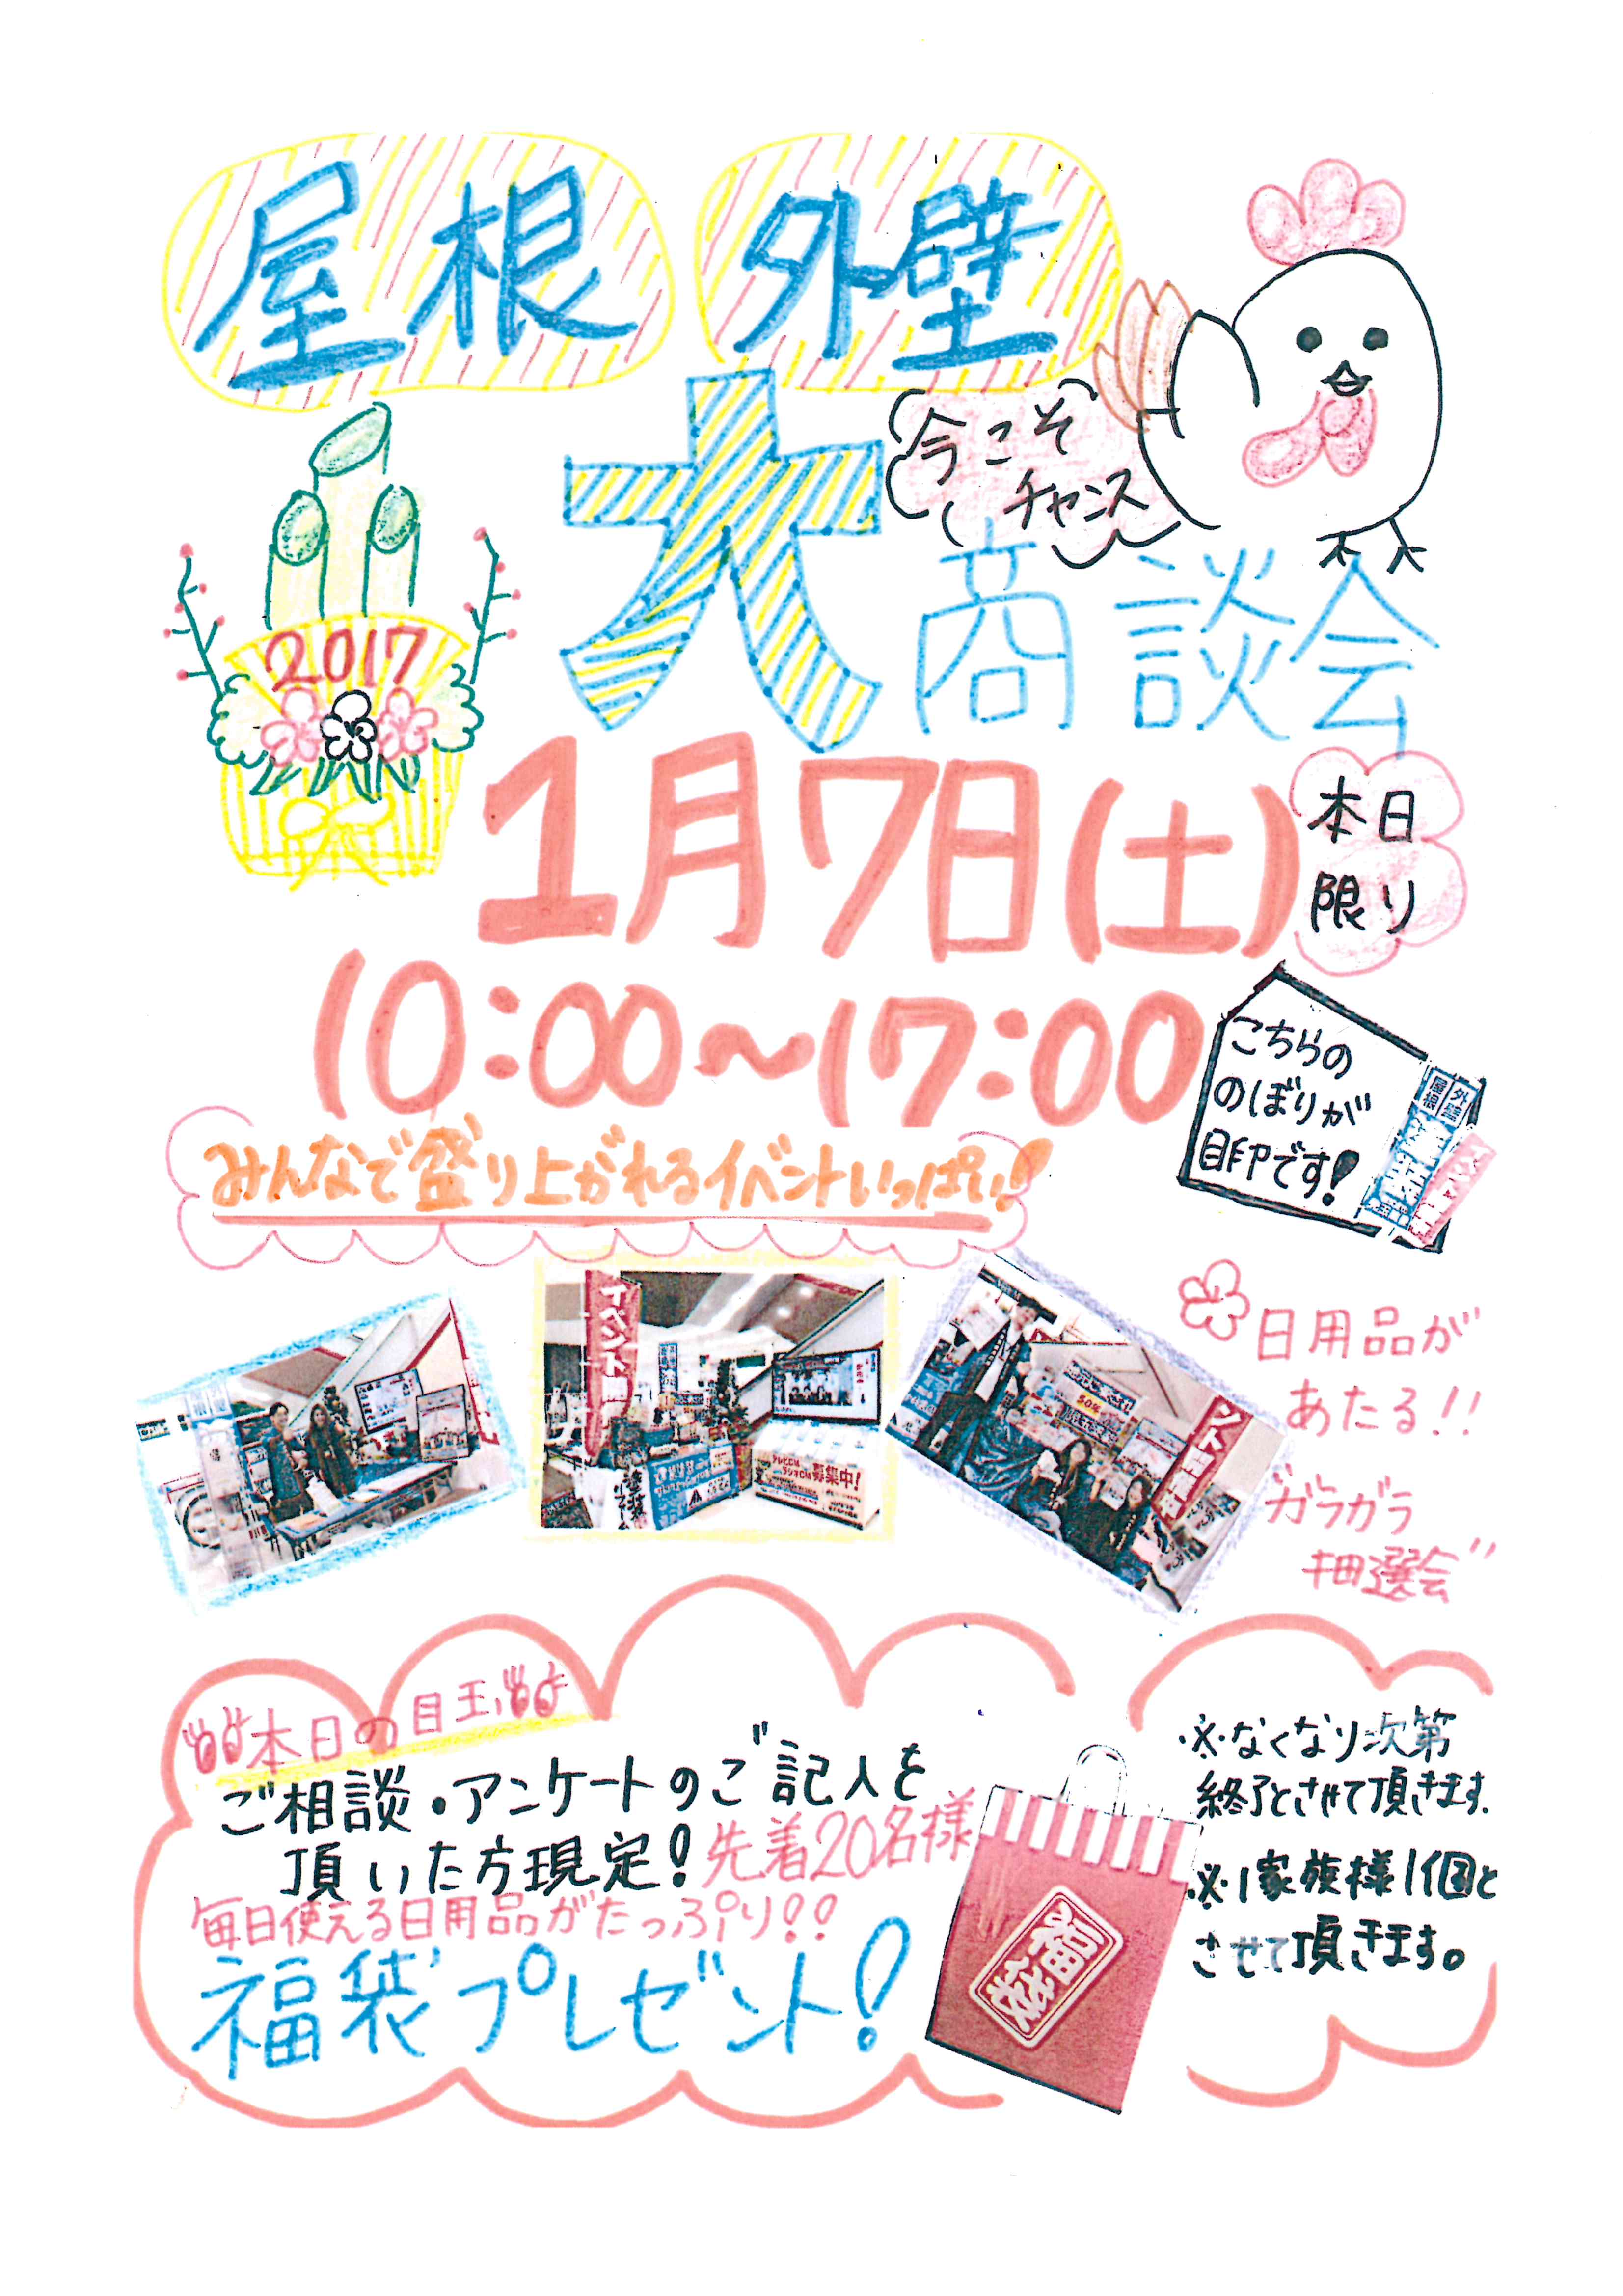 屋根 外壁
今こそ
チャンス
大商談会
2017
1月7日(土)
本日
限り
10:00~17:00
こちらの
のぼりが
目印です!
外壁
屋根
みんなで盛り上がれるイベントいっぱい!
イベント
募集中!
50%
日用品が
あたる!!
"ガラガラ
抽選会"
本日の目玉
ご相談・アンケートのご記入を
頂いた方現定!先着20名様
毎日使える日用品がたっぷり!!
福袋プレゼント!
福袋
※なくなり次第
終了とさせて頂きます.
※1家族様1個と
させて頂きます。